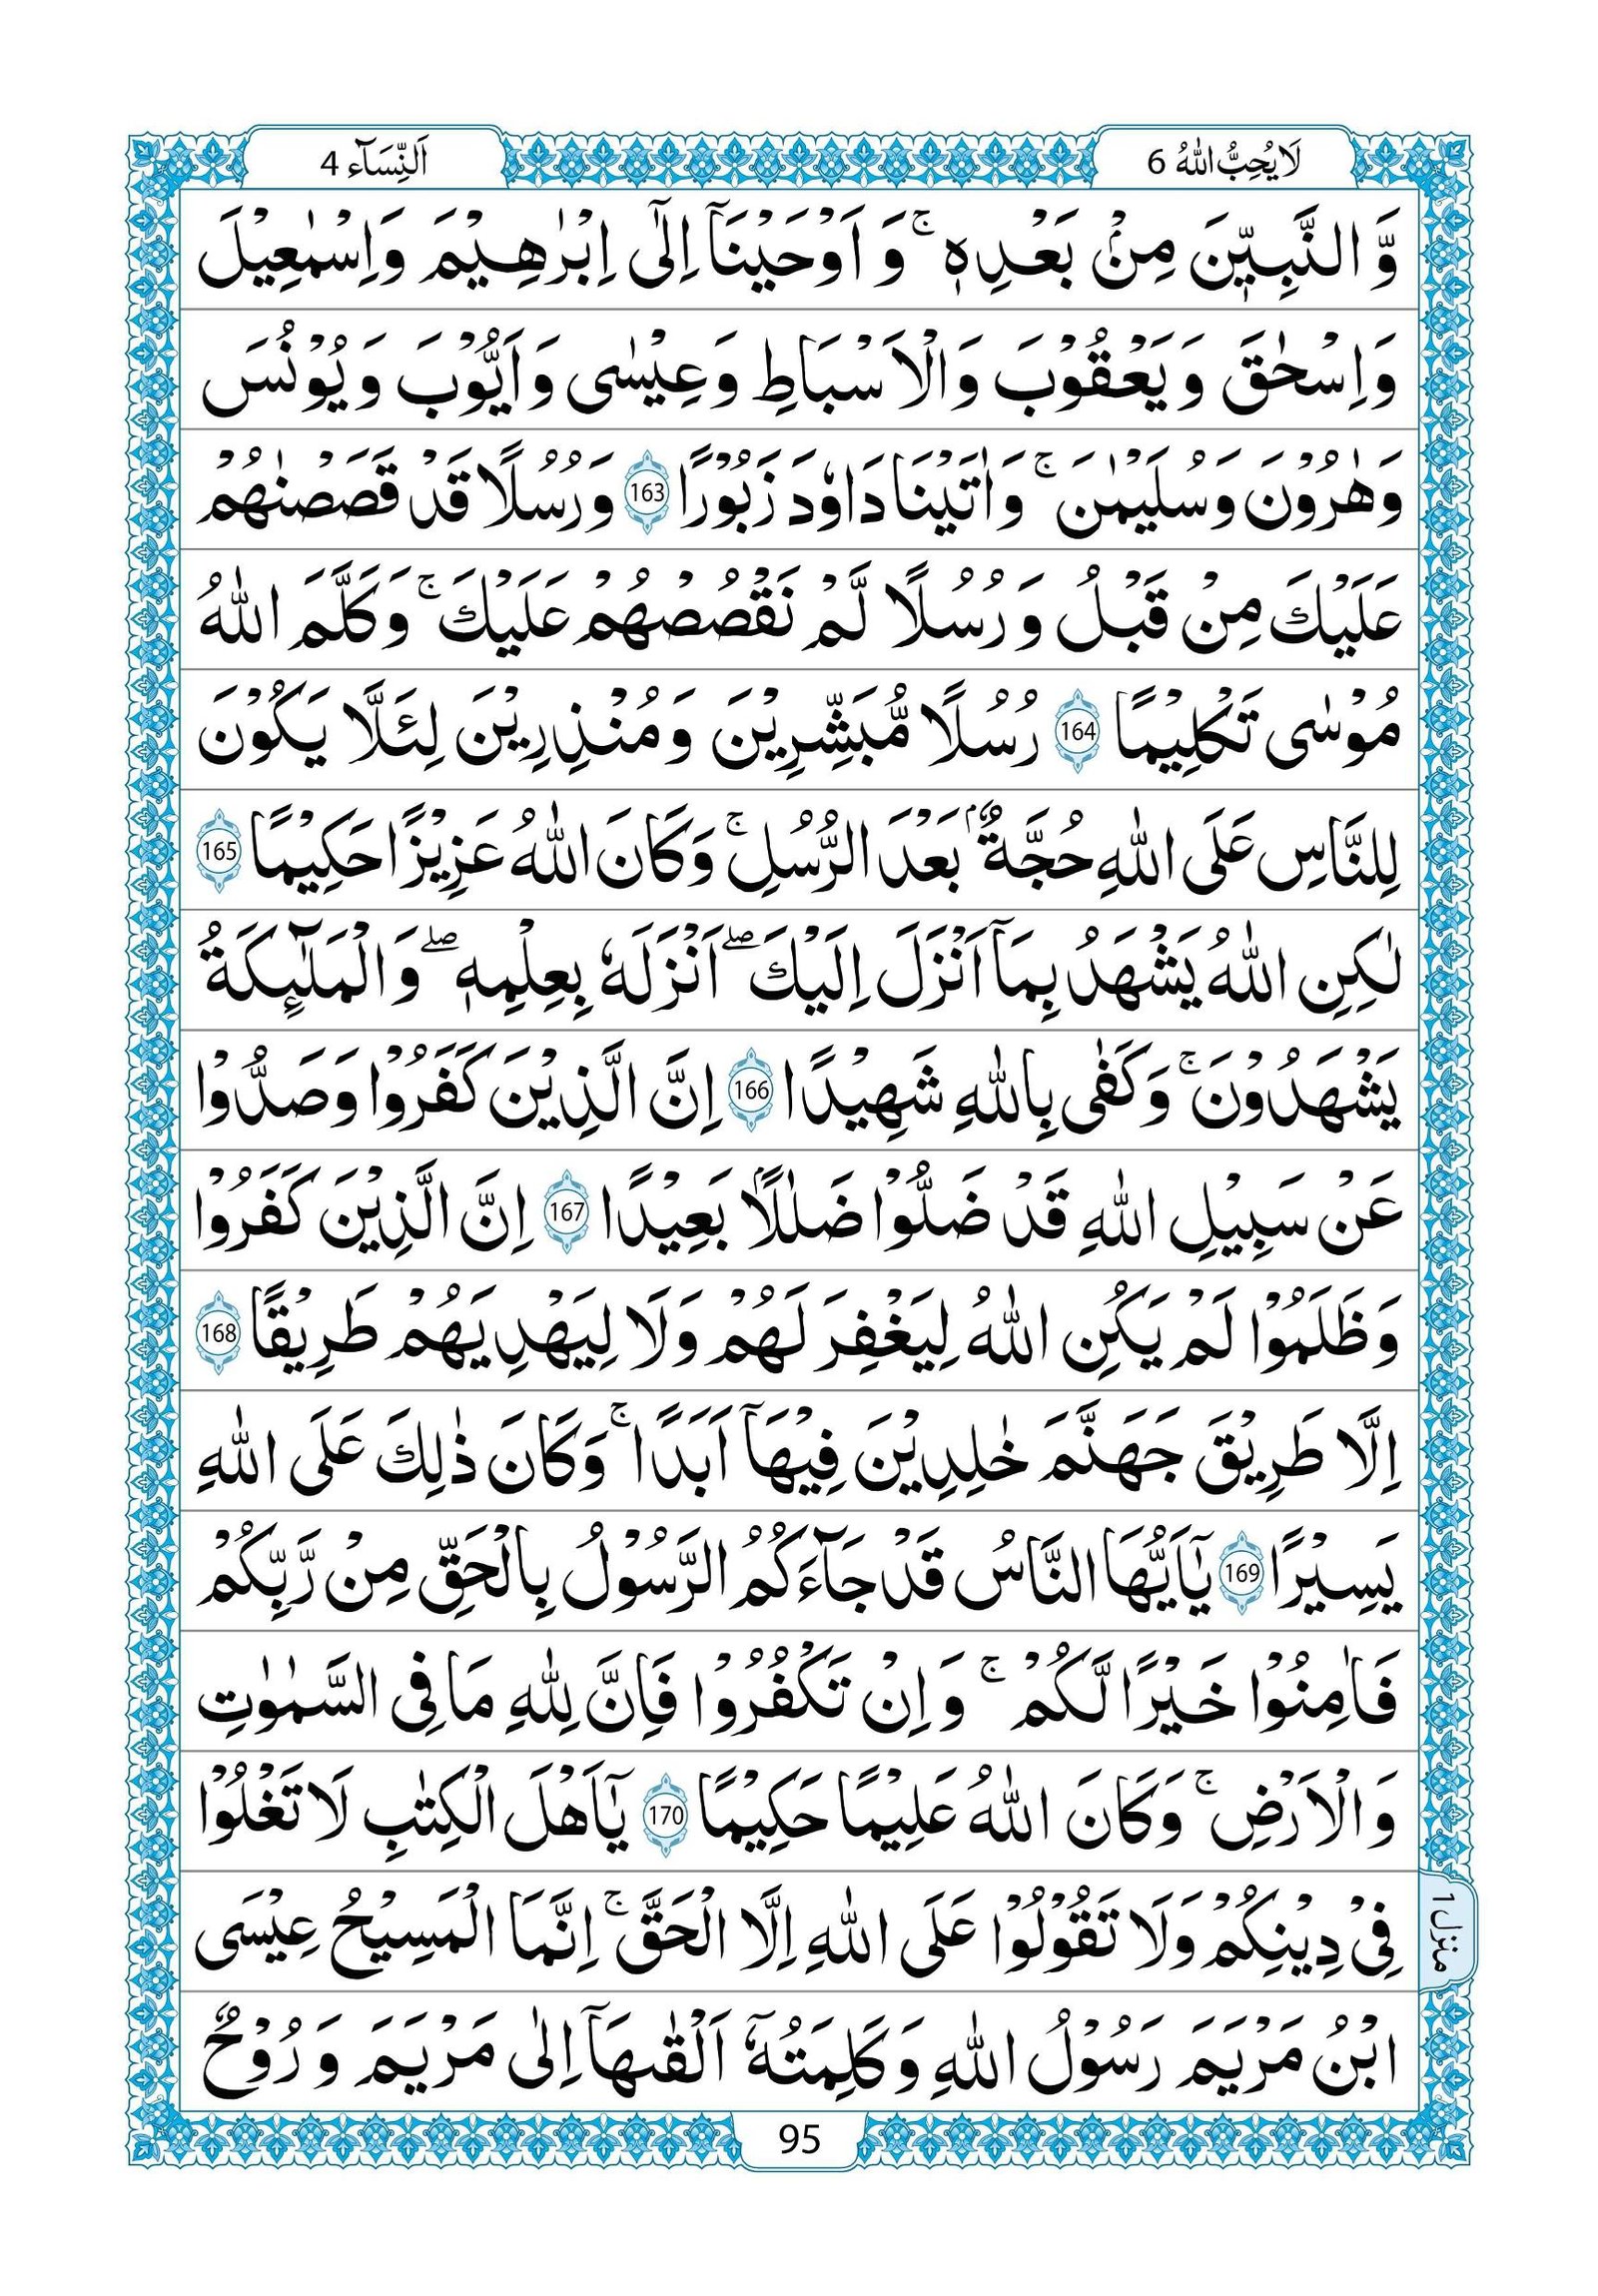 لَا يُحِبُّ اللهُ 6
اَلنِّسَآء 4
وَّ النَّبِيّٖنَ مِنْۢ بَعْدِهٖ ۚ وَ اَوْحَيْنَاۤ اِلٰٓى اِبْرٰهِيْمَ وَاِسْمٰعِيْلَ
وَاِسْحٰقَ وَيَعْقُوْبَ وَالْاَسْبَاطِ وَعِيْسٰى وَاَيُّوْبَ وَيُوْنُسَ
وَهٰرُوْنَ وَسُلَيْمٰنَ ۚ وَاٰتَيْنَا دَاوٗدَ زَبُوْرًا 163 وَرُسُلًا قَدْ قَصَصْنٰهُمْ
عَلَيْكَ مِنْ قَبْلُ وَرُسُلًا لَّمْ نَقْصُصْهُمْ عَلَيْكَ ۚ وَكَلَّمَ اللهُ
مُوْسٰى تَكْلِيْمًا 164 رُسُلًا مُّبَشِّرِيْنَ وَمُنْذِرِيْنَ لِئَلَّا يَكُوْنَ
لِلنَّاسِ عَلَى اللهِ حُجَّةٌۢ بَعْدَ الرُّسُلِ ۚ وَكَانَ اللهُ عَزِيْزًا حَكِيْمًا 165
لٰكِنِ اللهُ يَشْهَدُ بِمَاۤ اَنْزَلَ اِلَيْكَ ۖ اَنْزَلَهٗ بِعِلْمِهٖ ۖ وَالْمَلٰٓئِكَةُ
يَشْهَدُوْنَ ۚ وَكَفٰى بِاللهِ شَهِيْدًا 166 اِنَّ الَّذِيْنَ كَفَرُوْا وَصَدُّوْا
عَنْ سَبِيْلِ اللهِ قَدْ ضَلُّوْا ضَلٰلًاۢ بَعِيْدًا 167 اِنَّ الَّذِيْنَ كَفَرُوْا
وَظَلَمُوْا لَمْ يَكُنِ اللهُ لِيَغْفِرَ لَهُمْ وَلَا لِيَهْدِيَهُمْ طَرِيْقًا 168
اِلَّا طَرِيْقَ جَهَنَّمَ خٰلِدِيْنَ فِيْهَاۤ اَبَدًا ۚ وَكَانَ ذٰلِكَ عَلَى اللهِ
يَسِيْرًا 169 يٰۤاَيُّهَا النَّاسُ قَدْ جَآءَكُمُ الرَّسُوْلُ بِالْحَقِّ مِنْ رَّبِّكُمْ
فَاٰمِنُوْا خَيْرًا لَّكُمْ ۚ وَاِنْ تَكْفُرُوْا فَاِنَّ لِلّٰهِ مَا فِى السَّمٰوٰتِ
وَالْاَرْضِ ۚ وَكَانَ اللهُ عَلِيْمًا حَكِيْمًا 170 يٰۤاَهْلَ الْكِتٰبِ لَا تَغْلُوْا
فِيْ دِيْنِكُمْ وَلَا تَقُوْلُوْا عَلَى اللهِ اِلَّا الْحَقَّ ۚ اِنَّمَا الْمَسِيْحُ عِيْسَى
ابْنُ مَرْيَمَ رَسُوْلُ اللهِ وَكَلِمَتُهٗۤ اَلْقٰىهَاۤ اِلٰى مَرْيَمَ وَرُوْحٌ
منزل ١
95